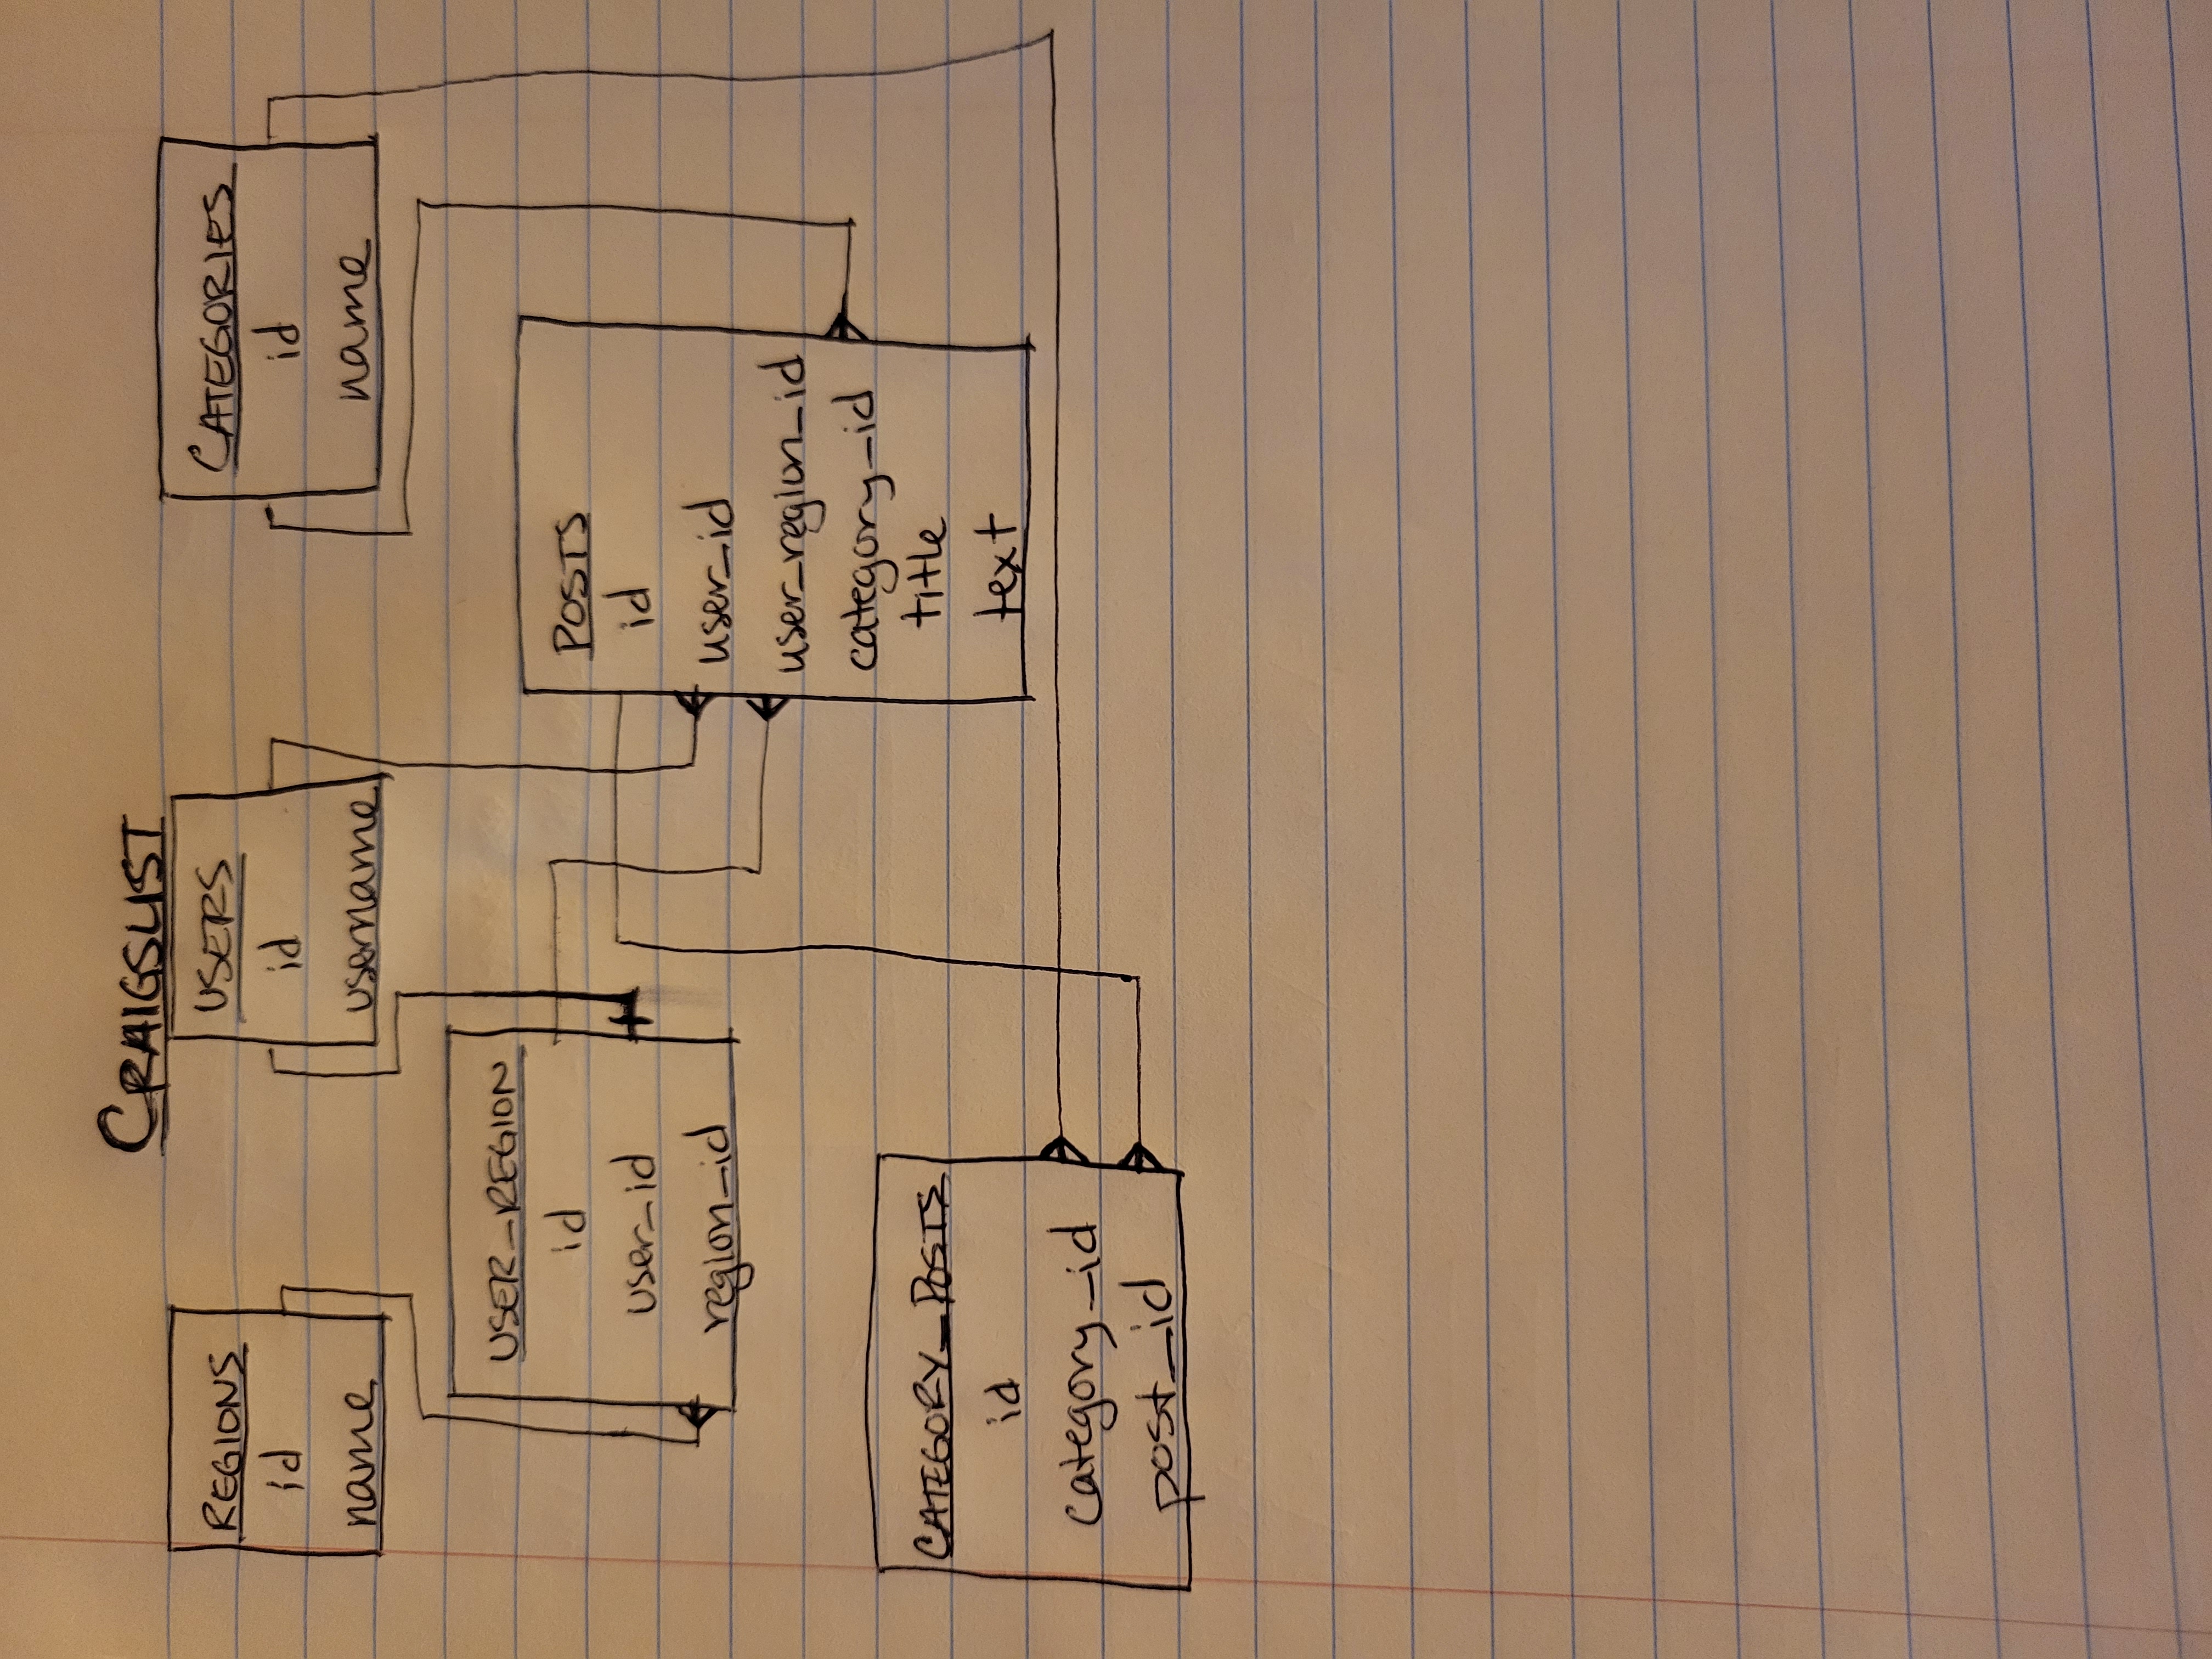 CRAIGSLIST
REGIONS
id
name
USERS
id
username
CATEGORIES
id
name
USER_REGION
id
user_id
region_id
POSTS
id
user_id
user_region_id
category_id
title
text
CATEGORY_POSTS
id
category_id
post_id